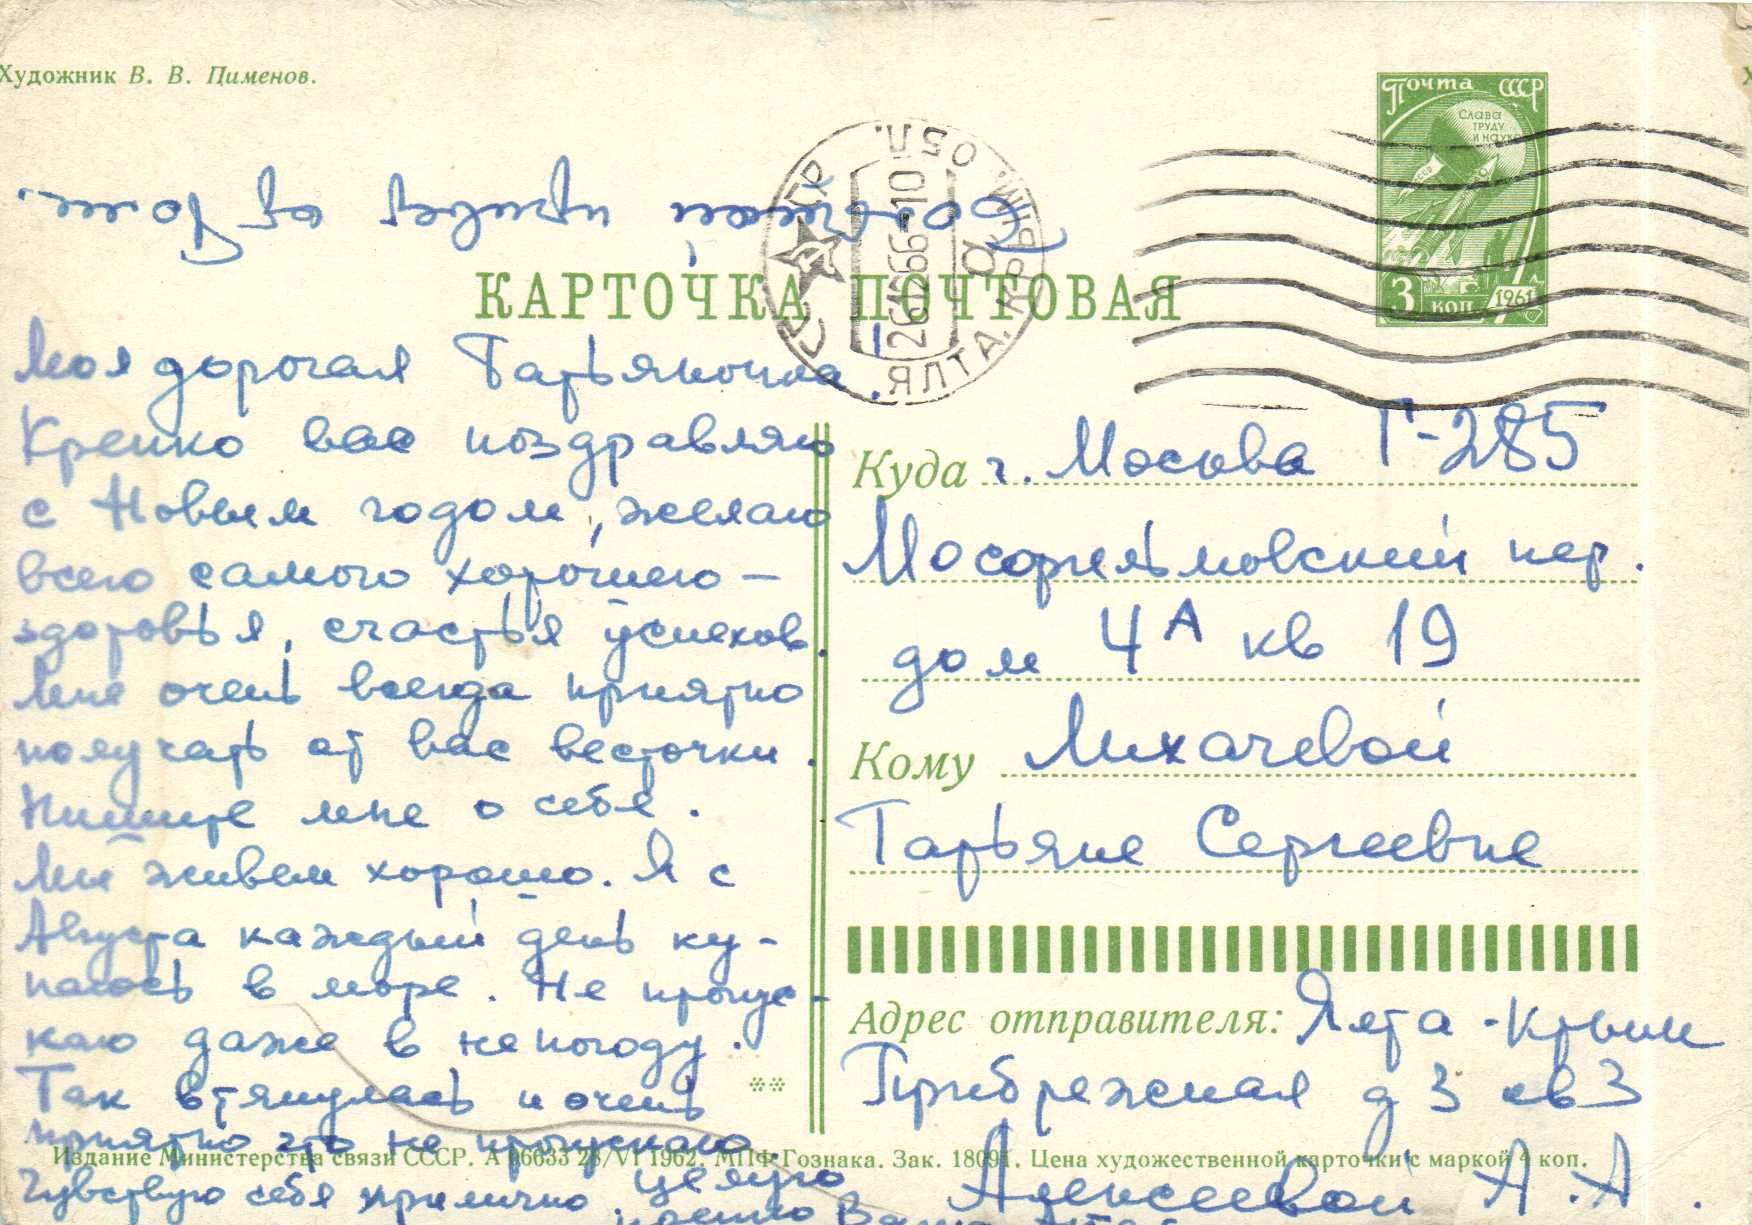 Художник В. В. Пименов.
Почта СССР
Слава
труду
и науке
3 коп
1961
ЯЛТА. КРЫМ. ОБЛ.
261266-10
КАРТОЧКА ПОЧТОВАЯ
Моя дорогая Татьяночка!
Крепко вас поздравляю
с Новым годом, желаю
всего самого хорошего –
здоровья, счастья успехов.
Мне очень всегда приятно
получать от вас весточки.
Пишите мне о себе.
Мы живем хорошо. Я с
Августа каждый день ку-
паюсь в море. Не пропус-
каю даже в непогоду.
Так втянулась и очень
приятно это не пропускаю
Чувствую себя прилично. Целую
крепко Ваша
Большой привет от
Куда г. Москва Г-285
Мосфильмовский пер.
дом 4А кв 19
Кому Лихачевой
Татьяне Сергеевне
Адрес отправителя: Ялта - Крым
Прибрежная д 3 кв 3
Алексеевой А. А.
Издание Министерства связи СССР. А 06633 28/VI 1962. МПФ Гознака. Зак. 18091. Цена художественной карточки с маркой 4 коп.